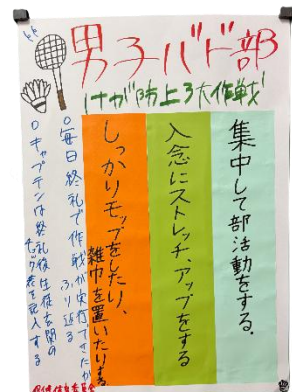 男子バド部
けが防止3大作戦
集中して部活動をする。
入念にストレッチ、アップをする
しっかりモップをしたり、
雑巾を置いたりする
○毎日終礼で作戦が実行できたか
ふり返る
○キャプテンは終礼後生徒玄関の
チェック表を記入する